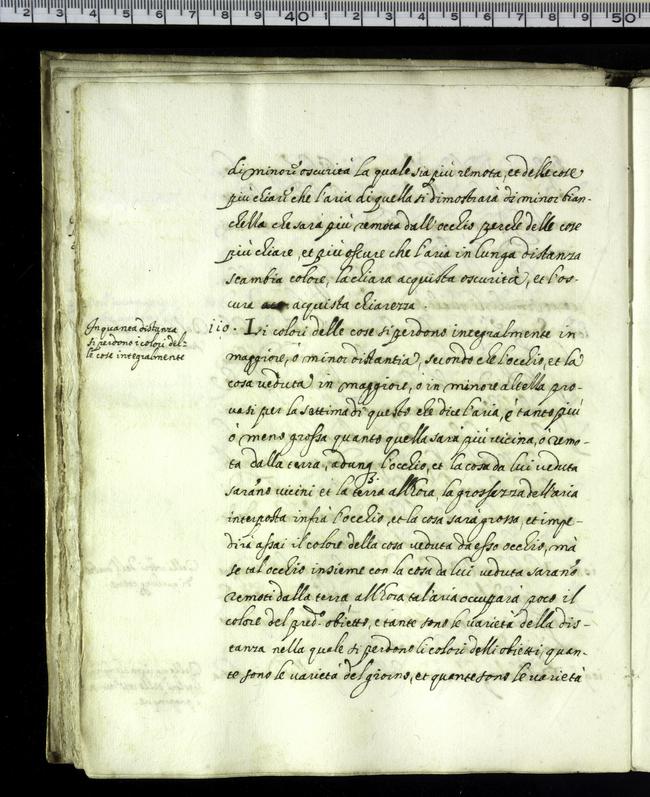 di minor oscurità la quale sia più remota, et delle cose
più chiare che l'aria di quella si dimostrarà di minor bian-
chezza che sarà più remota dall'occhio perche delle cose
più chiare, et più oscure che l'aria in lunga distanza
scambia colore, la chiara acquista oscurità, et l'os-
cure acquista chiarezza.
In quanta distanza
si perdono i colori del-
le cose integralmente
110. Li colori delle cose si perdono integralmente in
maggiore, ò minor distantia, secondo che l'occhio, et la
cosa veduta in maggiore, ò in minore altezza pro-
vasi per la settima di questo che dice l'aria, è tanto più
ò meno grossa quanto quella sarà più vicina, ò remo-
ta dalla terra, adunq l'occhio, et la cosa da lui veduta
sarano vicini et la terra allhora, la grossezza dell'aria
interposta infrà l'occhio, et la cosa sarà grossa, et impe-
dirà assai il colore della cosa veduta da esso occhio, mà
se tal occhio insieme con la cosa da lui veduta sarano
remoti dalla terra allhora tal'aria occuparà poco il
colore del pred.º obietto, e tante sono le varietà della dis-
tanza nella quale si perdono li colori delli obietti, quan-
te sono le varietà del giorno, et quante sono le varietà